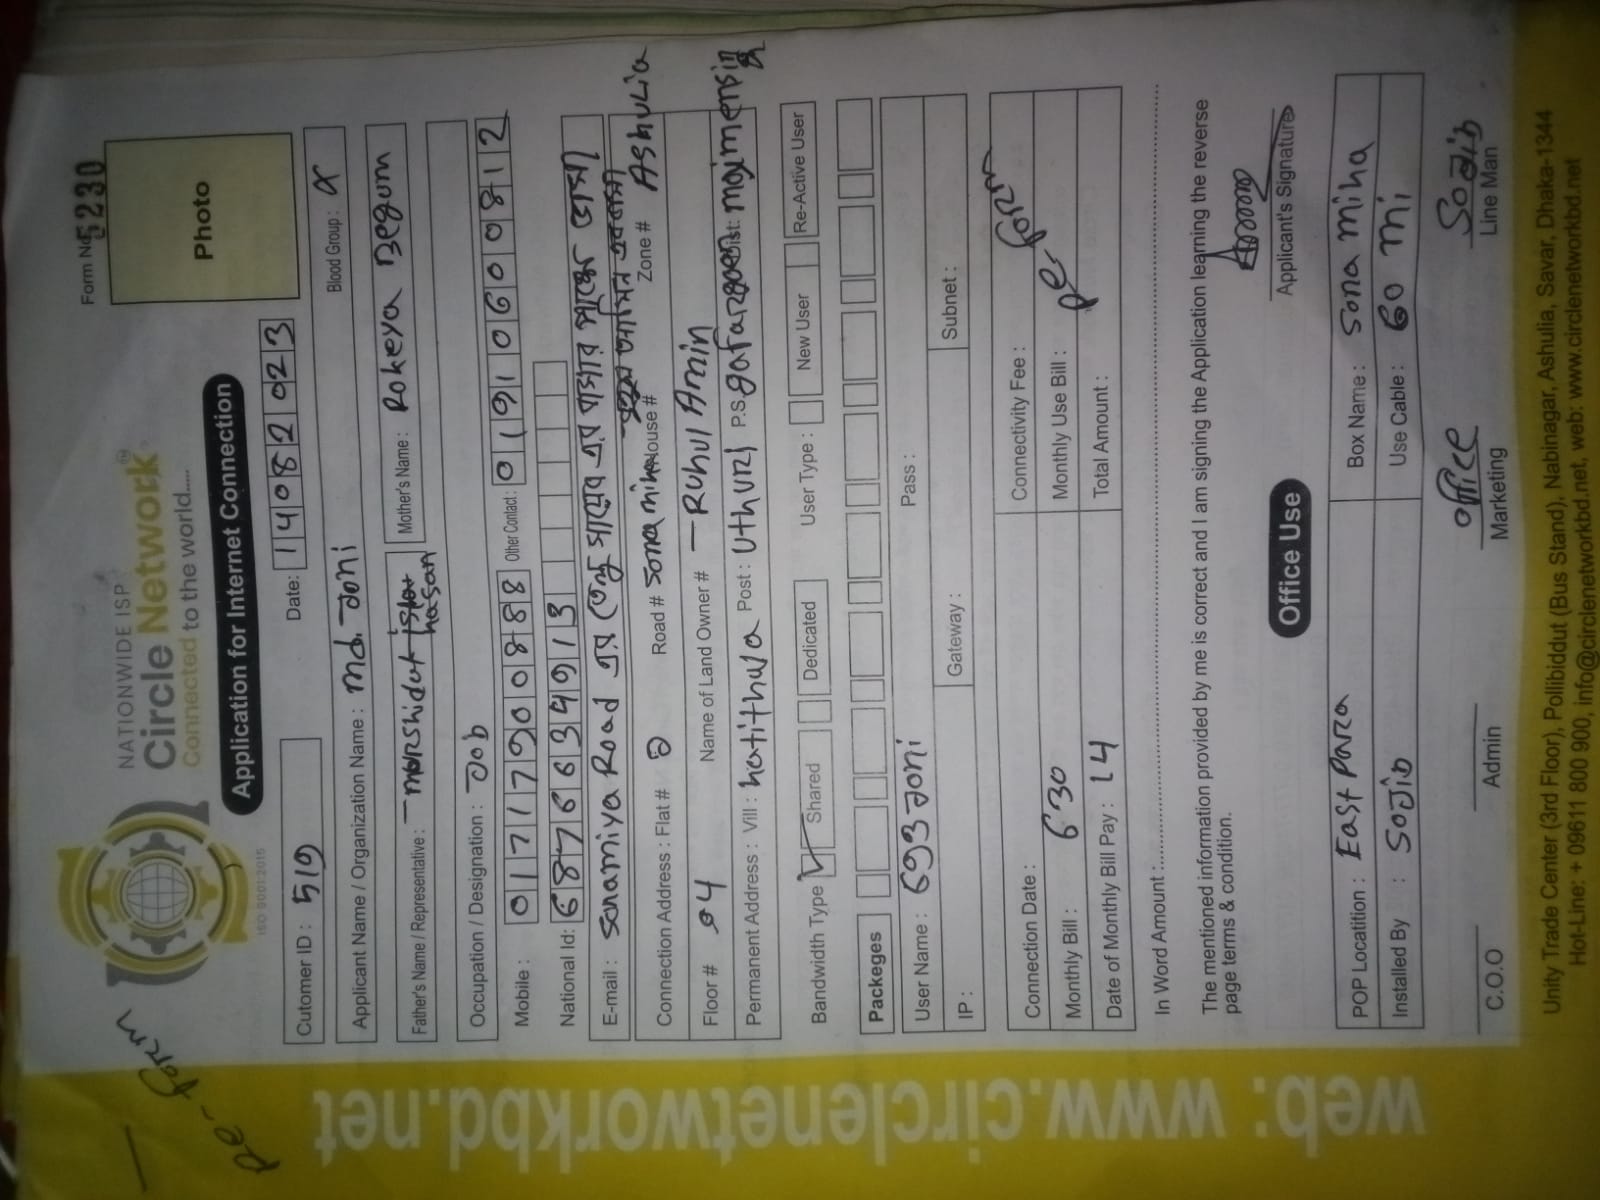 Re- Form
NATIONWIDE ISP
Circle Network
TM
Connected to the world.....
ISO 9001:2015
Form No.
5230
Photo
Application for Internet Connection
Cutomer ID : 519
Date: 14082023
Applicant Name / Organization Name : Md. Joni
Blood Group :
Father's Name / Representative : Morshidul
hasan
Mother's Name : Rokeya Begum
Occupation / Designation : Job
Mobile : 01717900888
Other Contact: 01910600812
National Id: 6876634913
E-mail : Sonamiya Road এর
Connection Address : Flat #
Road # Sona miha
House #
Zone # Ashulia
Floor # 04
Name of Land Owner # Ruhul Amin
Permanent Address : Vill : hatithula Post : Uthuri P.S. Dist: moimensing
Bandwidth Type
Shared
Dedicated
User Type :
New User
Re-Active User
Packeges
User Name : 693Joni
Pass :
IP :
Gateway :
Subnet :
Connection Date :
Connectivity Fee :
Re- form
Monthly Bill : 630
Monthly Use Bill :
Date of Monthly Bill Pay : 14
Total Amount :
In Word Amount :
The mentioned information provided by me is correct and I am signing the Application learning the reverse
page terms & condition.
Applicant's Signature
Office Use
POP Locatition : East Para
Box Name : Sona miha
Installed By : Sojib
Use Cable : 60 mi
C.O.O
Admin
office
Marketing
Sojib
Line Man
Unity Trade Center (3rd Floor), Pollibiddut (Bus Stand), Nabinagar, Ashulia, Savar, Dhaka-1344
Hot-Line: + 09611 800 900, info@circlenetworkbd.net, web: www.circlenetworkbd.net
web: www.circlenetworkbd.net